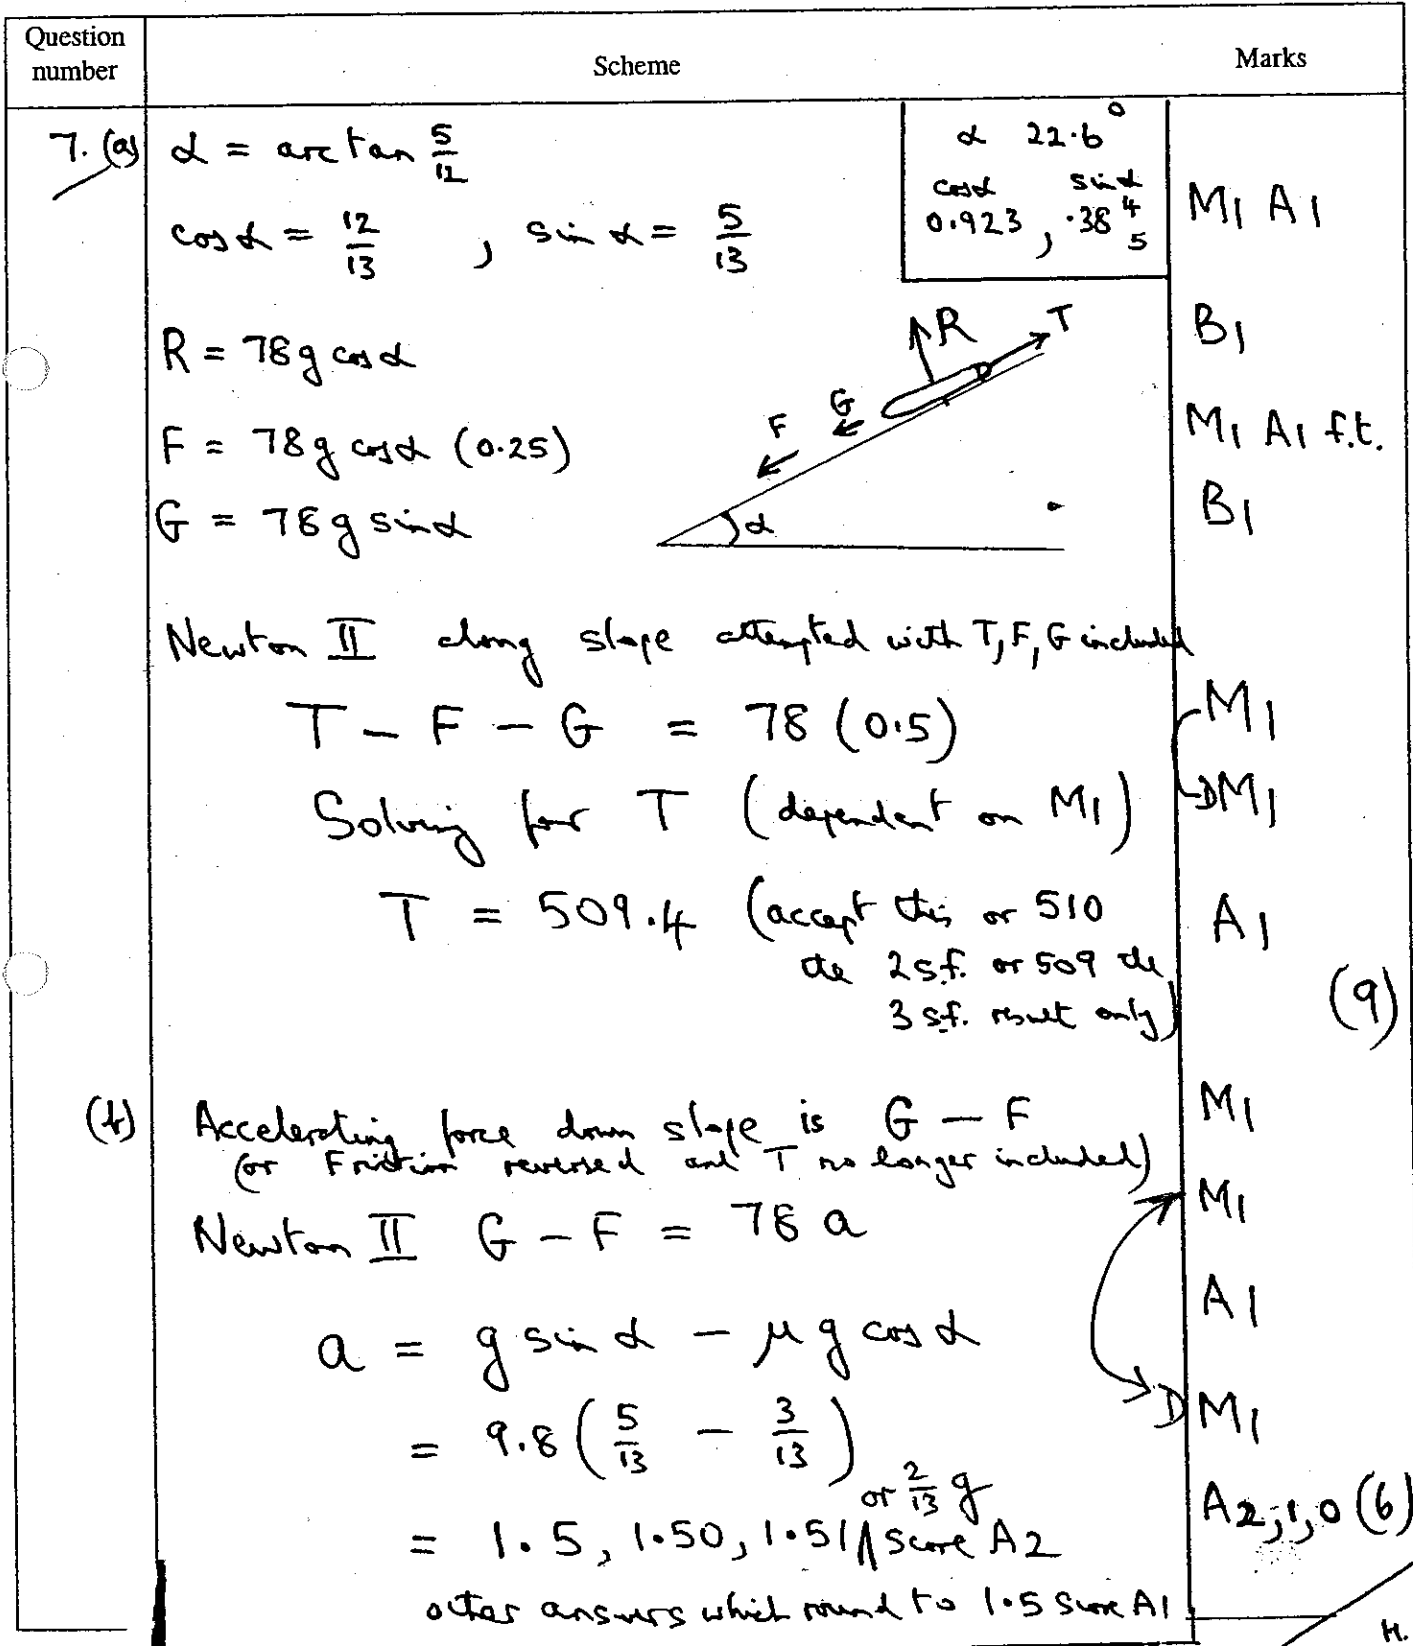 Question number
Scheme
Marks
7. (a) α = arctan 5/12
α 22.6°
cosα sinα
0.923 , .38 4/5
M1 A1
cosα = 12/13 , sinα = 5/13
R = 78g cosα
B1
R T
G
F
α
F = 78g cosα (0.25)
M1 A1 f.t.
G = 78g sinα
B1
Newton II along slope attempted with T, F, G included
T – F – G = 78 (0.5)
M1
Solving for T (dependent on M1)
DM1
T = 509.4 (accept this or 510
A1
the 2sf. or 509 the
3 sf. result only)
(9)
(b) Accelerating force down slope is G – F
M1
(or Friction reversed and T no longer included)
Newton II G – F = 78 a
M1
A1
a = g sinα – μ g cosα
= 9.8 (5/13 – 3/13)
DM1
or 2/13 g
= 1.5, 1.50, 1.51 ∧ score A2
A2,1,0 (6)
other answers which round to 1.5 score A1
H.